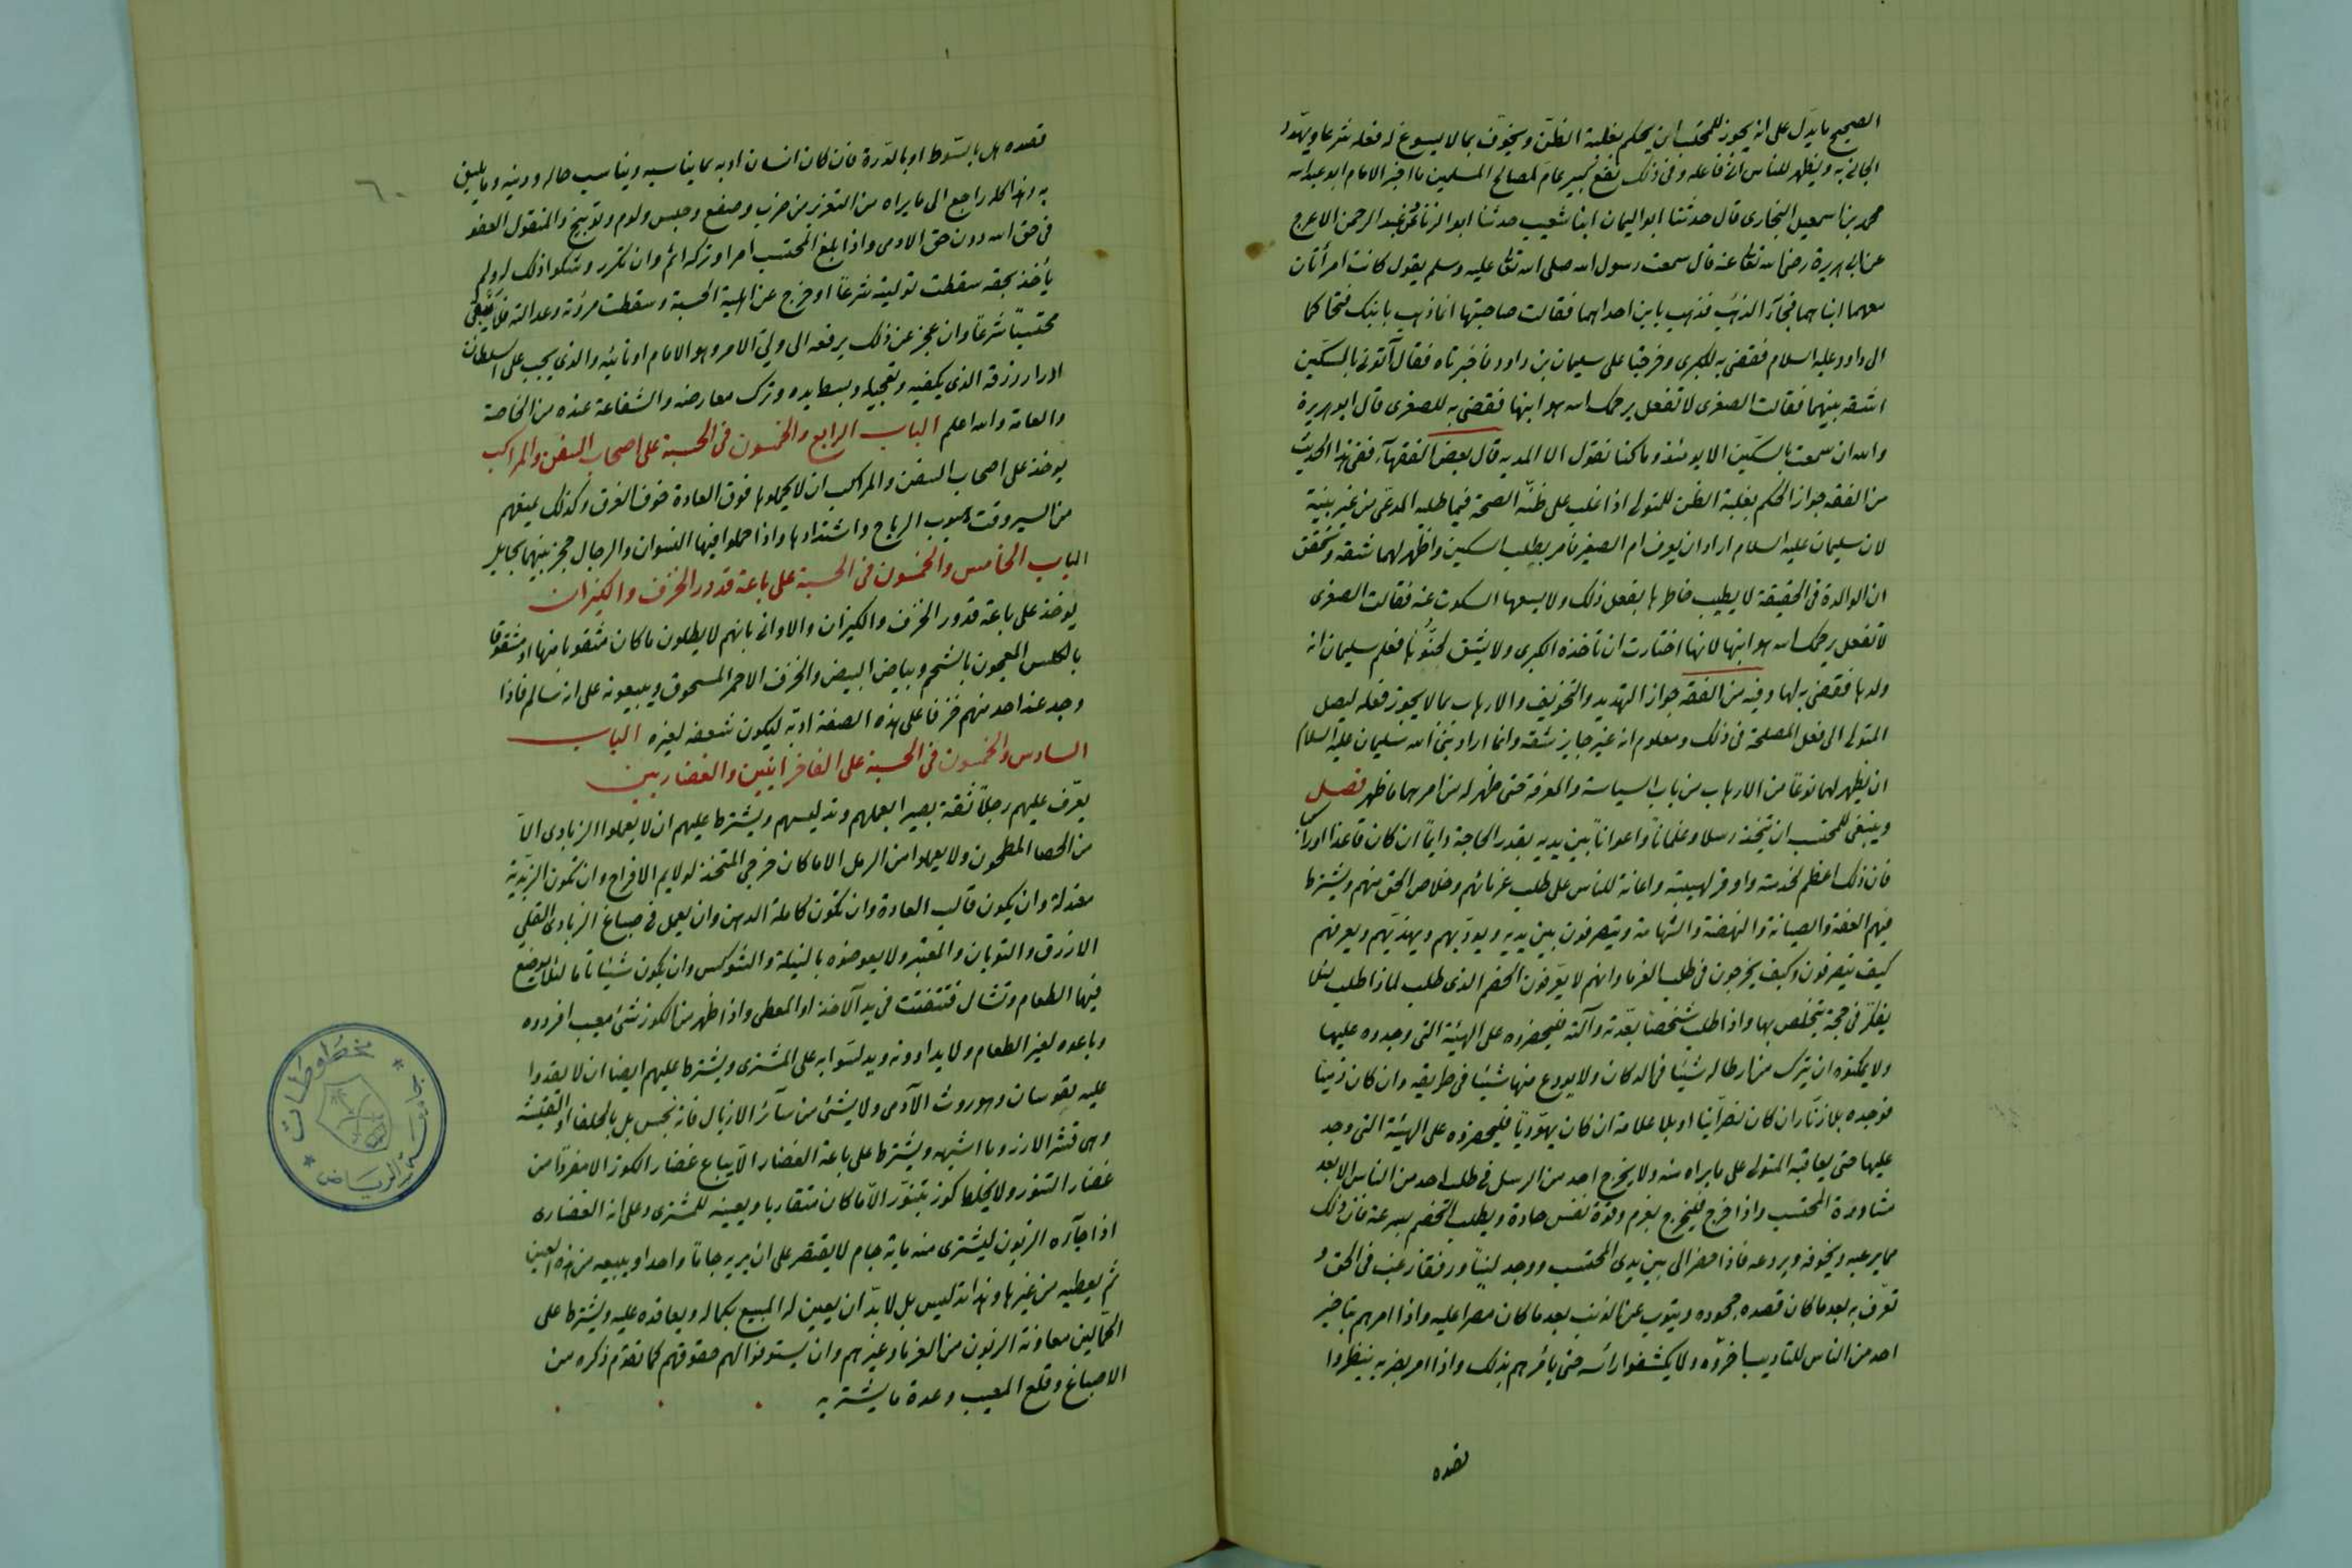 الصحيح ما يدل على انه يجوز للمحتسب ان يحكم بغلبة الظن ويخوف بما لا يسوغ له فعله شرعا ويهدد
الجانى به ويظهر للناس انه فاعله وفى ذلك نفع كبير عام لمصالح المسلمين ما اخبر الامام ابو عبد الله
محمد بن اسمعيل البخارى قال حدثنا ابو اليمان انبا شعيب حدثنا ابو الزناد عن عبد الرحمن الاعرج
عن ابى هريرة رضى الله تعالى عنه قال سمعت رسول الله صلى الله تعالى عليه وسلم يقول كانت امرأتان
معهما ابناهما فجآء الذئب فذهب بابن احداهما فقالت صاحبتها انما ذهب بابنك فتحاكما
الى داود عليه السلام فقضى به للكبرى وخرجتا على سليمان بن داود فاخبرتاه فقال آئتونى بالسكين
اشقه بينهما فقالت الصغرى لا تفعل يرحمك الله هو ابنها فقضى به للصغرى قال ابو هريرة
والله ان سمعت بالسكين الا يومئذ وما كنا نقول الا المدية قال بعض الفقهآء ففى هذا الحديث
من الفقه جواز الحكم بغلبة الظن للمتولى اذا غلب على ظنه الصحة فيما طلبه المدعى من غير بينة
لان سليمان عليه السلام اراد ان يعرف ام الصغير فامر بطلب السكين واظهر لهما شقه وتحقق
ان الوالدة فى الحقيقة لا يطيب خاطرها بفعل ذلك ولا يسعها السكوت عنه فقالت الصغرى
لا تفعل يرحمك الله هو ابنها لانها اختارت ان تأخذه الكبرى ولا يشق لحنوها فعلم سليمان انه
ولدها فقضى به لها وفيه من الفقه جواز التهديد والتخويف والارهاب بما لا يجوز فعله ليصل
المتولى الى فعل المصلحة فى ذلك ومعلوم انه غير جايز شقه وانما اراد نبى الله سليمان عليه السلام
ان يظهر لهما نوعا من الارهاب من باب السياسة والمعرفة حتى ظهر له من امرهما ما ظهر فصل
وينبغى للمحتسب ان يتخذ رسلا وغلمانا واعوانا بين يديه بقدر الحاجة دايما ان كان قاعدا او راكبا
فان ذلك اعظم لحرمته واوفر لهيبته واعانة للناس على طلب غرمائهم وخلاص الحق منهم ويشترط
فيهم العفة والصيانة والنهضة والشهامة ويتصرفون بين يديه ويؤدبهم ويهذبهم ويعرفهم
كيف يتصرفون وكيف يخرجون فى طلب الغرما وانهم لا يعرفون الخصم الذى طلب لماذا طلب لئلا
يفكر فى حجة يتخلص بها واذا طلب شخصا بعدته وآلته فليحضروه على الهيئة التى وجدوه عليها
ولا يمكنوه ان يترك من ارطاله شيئا فى الدكان ولا يودع منها شيئا فى طريقه وان كان ذميا
فوجده بلا زنار ان كان نصرآنيا او بلا علامة ان كان يهوديا فليحضروه على الهيئة التى وجد
عليها حتى يعاقبه المتولى على ما يراه منه ولا يخرج احد من الرسل فى طلب احد من الناس الا بعد
مشاورة المحتسب واذا خرج فليخرج بعزم وقوة نفس حادة ويطلب الخصم بسرعة فان ذلك
مما يرعبه ويخوفه ويردعه فاذا حضر الى بين يدى المحتسب ووجد لينا ورفقا رغب فى الحق و
تعرف به بعد ما كان قصده جحوده ويتوب عن الذنب بعد ما كان مصرا عليه واذا امرهم بتاخير
احد من الناس للتاديب اخروه ولا يكشفوا رأسه حتى يأمرهم بذلك واذا امر بضربه ينظروا
قصده
٦٠
قصده هل بالسوط او بالدرة فان كان انسان ادبه بما يناسبه ويناسب حاله ودينه وما يليق
به وهذا كله راجع الى ما يراه من التعزير من ضرب وصفع وحبس ولوم وتوبيخ والمنقول العفو
فى حق الله دون حق الادمى واذا بلغ المحتسب امرا وتركه اثم وان تكرر وشكوا ذلك له ولم
يأخذ بحقه سقطت توليته شرعا او خرج عن اهلية الحسبة وسقطت مروئته وعدالته فلا يبقى
محتسبا شرعا وان عجز عن ذلك يرفعه الى ولى الامر وهو الامام او نائبه والذى يجب على السلطان
ادرار رزقه الذى يكفيه وتعجيله وبسط يده وترك معارضه والشفاعة عنده من الخاصة
والعامة والله اعلم الباب الرابع والخمسون فى الحسبة على اصحاب السفن والمراكب
يوخذ على اصحاب السفن والمراكب ان لا يحملوها فوق العادة خوف الغرق وكذلك يمنعهم
من السير وقت هبوب الرياح واشتدادها واذا حملوا فيها النسوان والرجال حجز بينهما بحايل
الباب الخامس والخمسون فى الحسبة على باعة قدور الخزف والكيزان
يوخذ على باعة قدور الخزف والكيزان والاوانى بانهم لا يطلون ما كان مثقوبا منها او مشقوقا
بالكلس المعجون بالشحم وبياض البيض والخزف الاحمر المسحوق ويبيعونه على انه سالم فاذا
وجد عند احد منهم خزفا على هذه الصفة ادبه ليكون شعفه لغيره الباب
السادس والخمسون فى الحسبة على الفاخرانيين والغضاريين
يعرف عليهم رجلا ثقة بصيرا بعملهم وتدليسهم ويشترط عليهم ان لا يعملوا الزبادى الا
من الحصا المطحون ولا يعملوا من الرمل الا ما كان خرجى المتخذ لولايم الافراح وان تكون الزبدية
معتدلة وان يكون قالب العادة وان تكون كاملة الدهن وان يعمل فى صباغ الزبادى القلى
الازرق والتوبان والمعتبر ولا يعوضوه بالنيلة والشوكس وان يكون شيئا تاما لئلا يوضع
فيها الطعام وتشال فتتفتت فى يد الآخذ او المعطى واذا ظهر من الكوز شئ معيب افردوه
وباعوه لغير الطعام ولا يداوونه ويدلسوا به على المشترى ويشترط عليهم ايضا ان لا يقدوا
عليه بقوسات وهو روث الآدمى ولا بشئ من سآئر الازبال فانه نجس بل بالحلفا او القنشه
وهى قشر الارز وما اشبهه ويشترط على باعة الغضار الا يباع غضار الكوز الا مفردا من
غضار التنور ولا يخلط كوز بتنور الا ما كان متقاربا ويعينه للمشترى وعلى انه الغضارى
اذا جآءه الزبون ليشترى منه ماية جام لا يقتصر على ان يريه جاما واحدا ويبيعه من هذه العين
ثم يعطيه من غيرها وهذا تدليس بل لابد ان يعين له المبيع بكماله ويعاقده عليه ويشترط على
الحمالين معاونة الزبون من الغربا وغيرهم وان يستوفوا لهم حقوقهم كما تقدم ذكره من
الاصباغ وقلع المعيب وعدة ما يشتريه
مخطوطات
جامعة الرياض